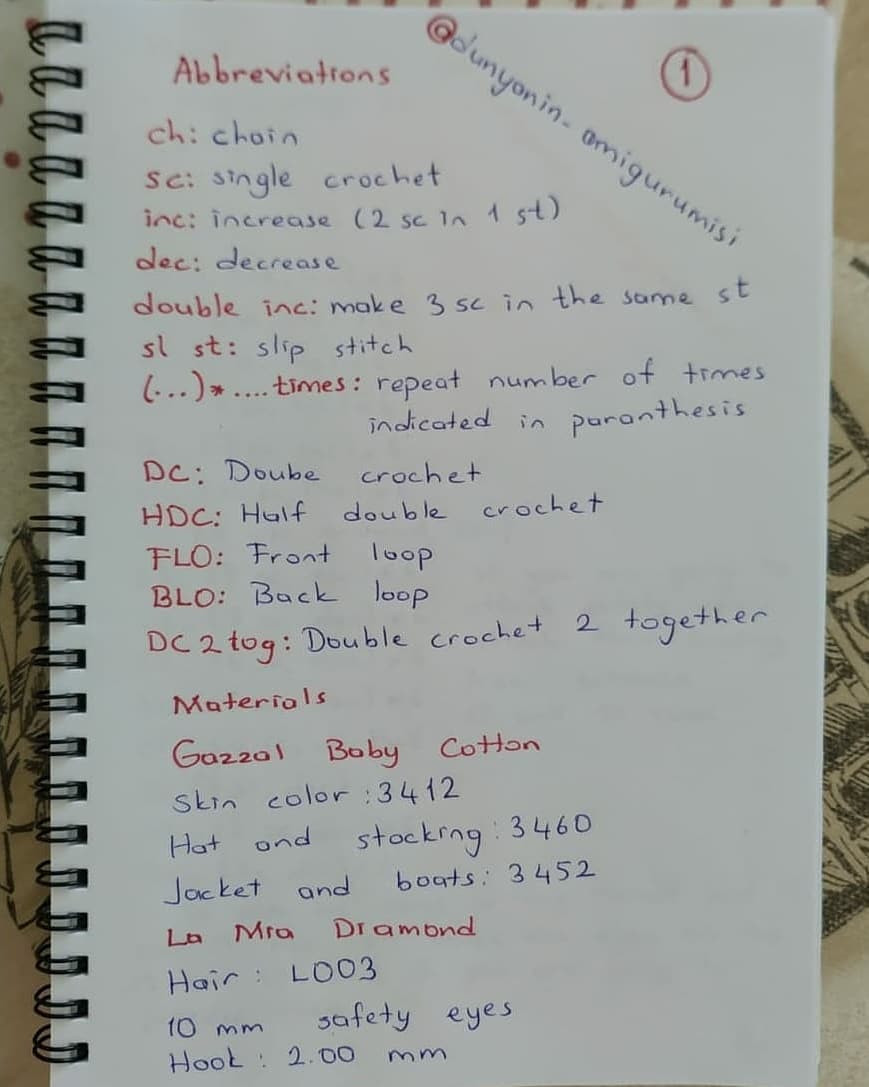 Abbreviations
@dunyanin_amigurumisi
1
ch: chain
sc: single crochet
inc: increase (2 sc in 1 st)
dec: decrease
double inc: make 3 sc in the same st
sl st: slip stitch
(...)*....times: repeat number of times
indicated in paranthesis
DC: Doube crochet
HDC: Half double crochet
FLO: Front loop
BLO: Back loop
DC 2 tog: Double crochet 2 together
Materials
Gazzal Baby Cotton
Skin color: 3412
Hat and stocking: 3460
Jacket and boats: 3452
La Mia Diamond
Hair: L003
10 mm safety eyes
Hook: 2.00 mm